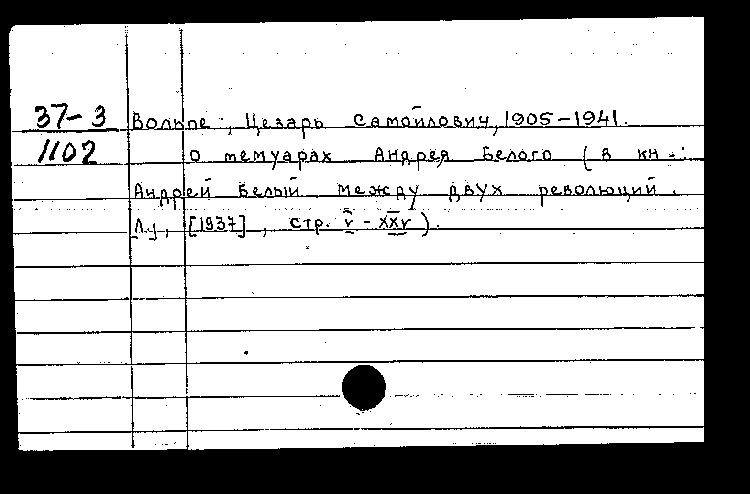 37-3 Вольпе, Цезарь Самойлович, 1905-1941.
1102 О мемуарах Андрея Белого (в кн.:
Андрей Белый. Между двух революций.
Л., [1937], стр. V-XXV).